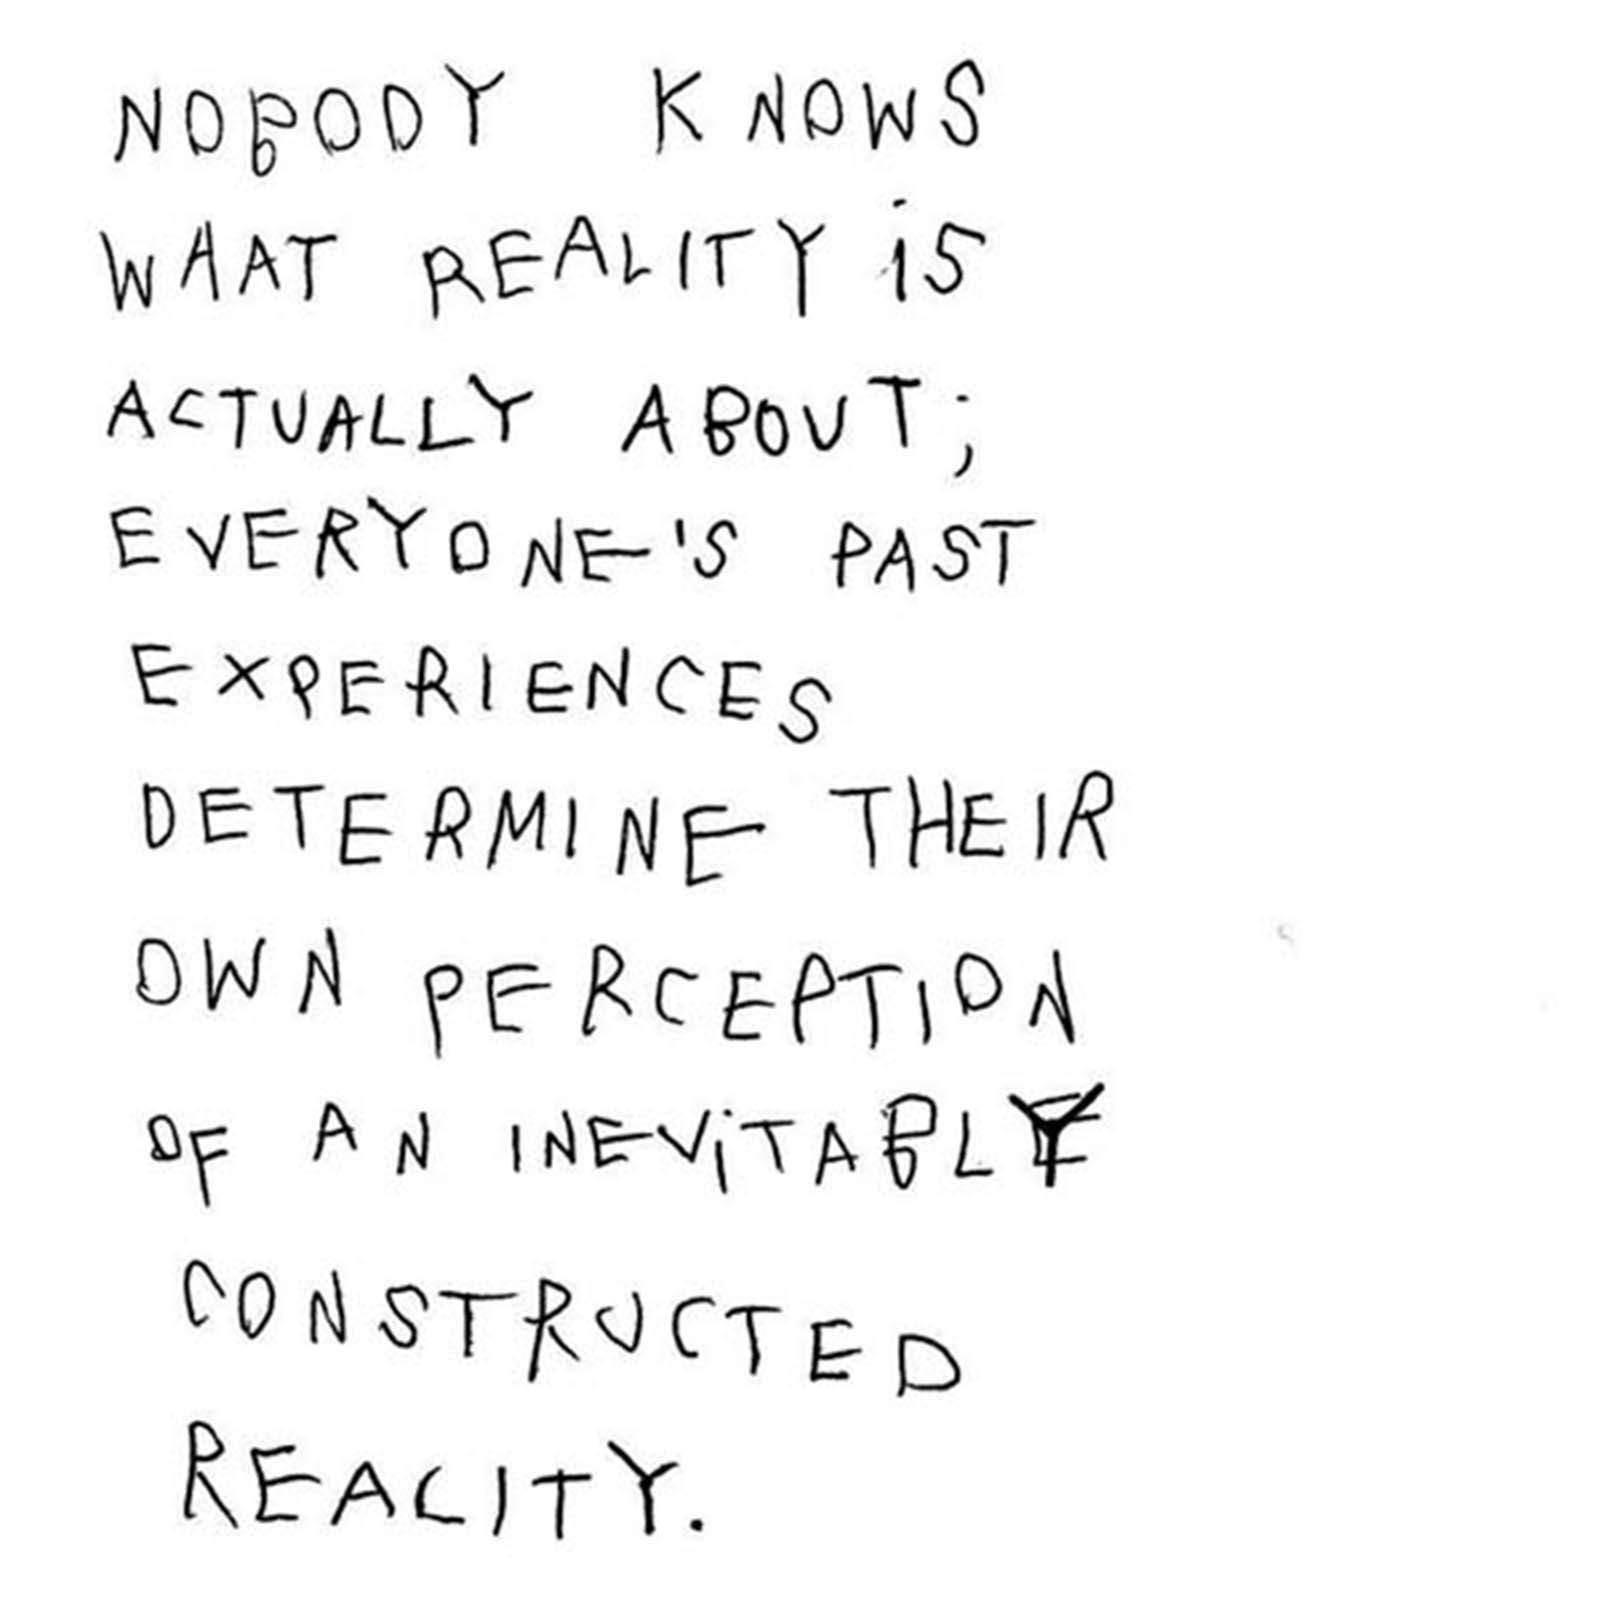 NOBODY KNOWS
WHAT REALITY iS
ACTUALLY ABOUT;
EVERYONE'S PAST
EXPERIENCES
DETERMINE THEIR
OWN PERCEPTION
OF AN INEViTABLY
CONSTRUCTED
REALITY.